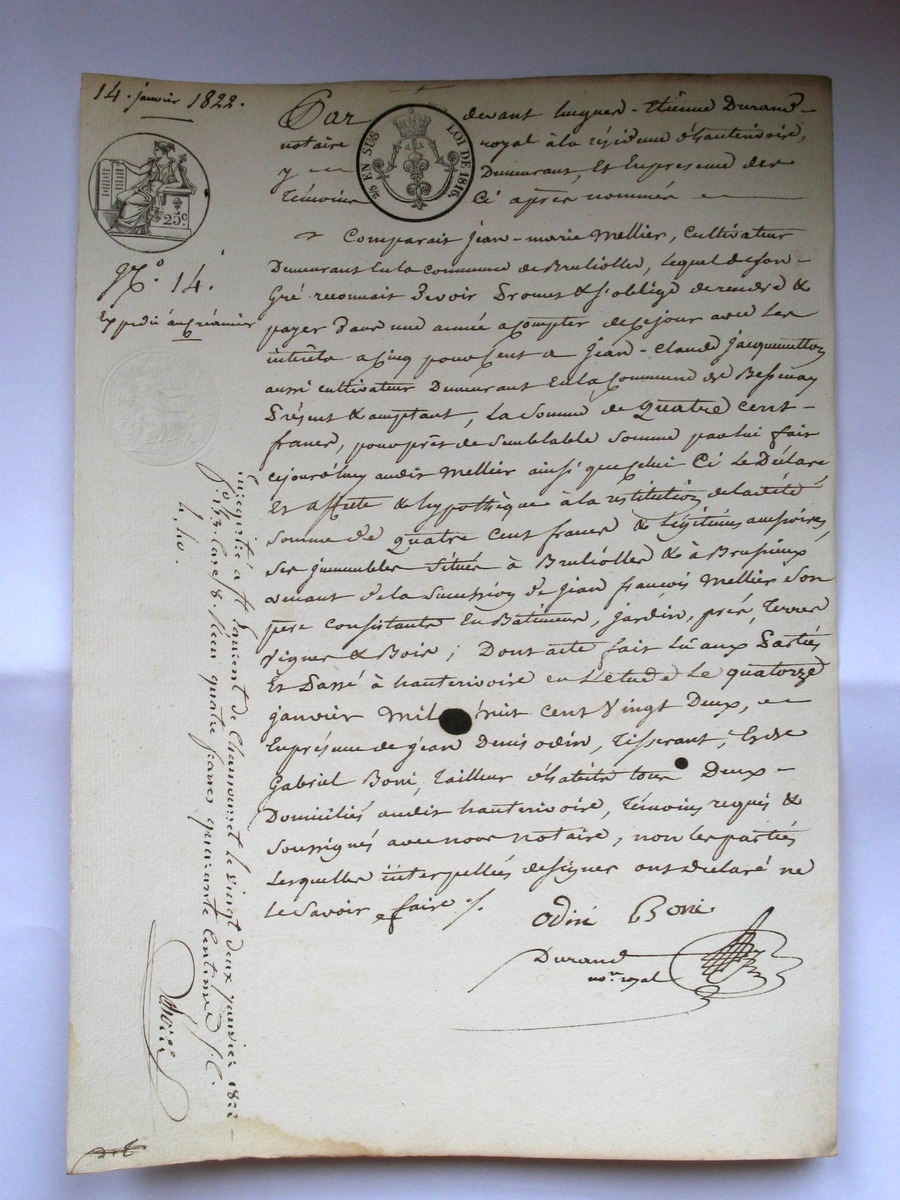 14. janvier 1822.
Par devant hugues - Etiênne Durand -
notaire royal à la résidence d'hauterivoire,
y Demeurant, Et En présence des
Témoins Ci après nommés
EN SUS LOI DE 1816.
25c.
N.º 14.
Expédié au Créancier
Comparait Jean - marie Mellier, Cultivateur
Demeurant En la commune de Brullolles, lequel de Son -
Gré reconnait devoir Promet & S'oblige de rendre &
payer dans une année à Compter de Ce jour avec Les
intérêts à Cinq pour Cent à Jean - Claude Jacquemetton
aussi cultivateur Demeurant En la Commune de Bessenay
Présent & acceptant, La Somme de quatre cent -
francs, pour prêt de Semblable Somme par lui fait
cejourd'huy audit Mellier ainsi que Celui Ci Le Déclare
Et affecte & hypothèque à la restitution de la dité
Somme de quatre Cent francs & Légitimes accessoires,
Ses immeubles Situés à Brullolles & à Brussieux
venant de la Succession de Jean francois Mellier Son
père Consistants En Bâtiments, Jardin, prés, Terres
Vignes & Bois ; Dont acte fait Lu aux Parties
Et Passé à hauterivoire en L'étude Le quatorze
janvier Mil huit Cent Vingt Deux,
En présence de Jean Denis Odin, Tisserant, Et de
Gabriel Boni, Tailleur d'habits tous Deux -
Domiciliés audit hauterivoire, Témoins requis &
Soussignés avec nous notaire, non les parties
Lesquelles interpellées de signer ont déclaré ne
Le Savoir faire ./.
Odin Boni
Durand
no.re royal
Enregistré à St Laurent de Chamousset le vingt deux janvier 1822 -
fo 133. Case 8. Reçu quatre francs quarante Centimes